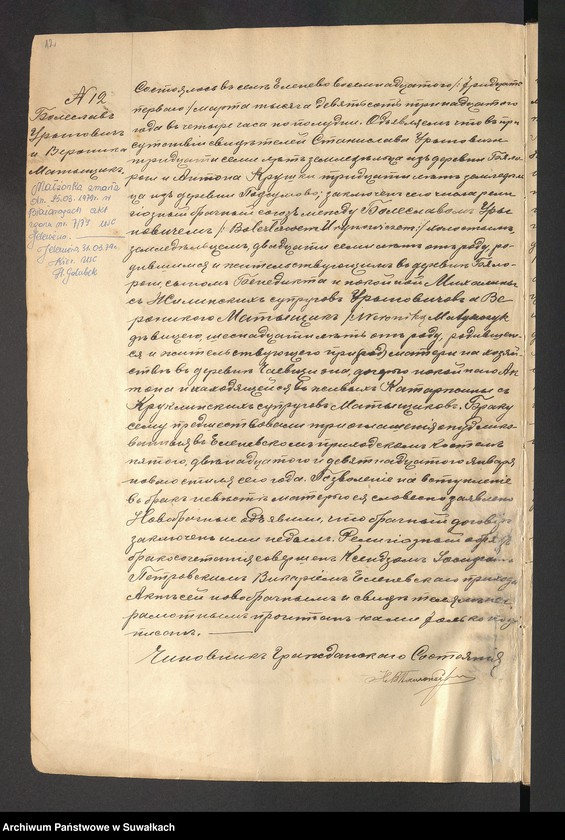 12.
№ 12
Болеславъ
Урыновичъ
и Вероника
Матыщикъ
Małżonka zmarła
dn. 25.03.1979r. w
akt
zgonu nr. 7/79 USC
Jeleniewo.
31.03.79r.
Kier. USC
Состоялось въ селѣ Еленево восемнадцатаго /: тридцать
перваго / марта тысяча девятьсотъ тринадцатаго
года въ четыре часа по полудни. Объявляемъ что въ при
сутствіи свидѣтелей Станислава Урыновича
тридцати семи лѣтъ земледѣльца изъ деревни
и Антона Крушки тридцати лѣтъ земледѣль
ца изъ деревни Подсумово; заключенъ сего числа рели
гіозный брачный союзъ между Болеславомъ Уры
новичемъ /: Bolesław :/ холостымъ,
земледѣльцемъ, двадцати семи лѣтъ отъ роду, ро
дившимся и жительствующимъ въ деревнѣ
сыномъ Бенедикта и покойной Михалины
съ Жилинскихъ супруговъ Урыновичовъ и Ве
роникою Матыщикъ /
дѣвицею, лѣтъ отъ роду, родившею
ся и жительствующею при матери на хозяй
ствѣ въ деревнѣ дочерью покойнаго Ан
тона и находящейся въ живыхъ Катаржины съ
Круклинскихъ супруговъ Матыщиковъ. Браку
сему предшествовали три оглашенія опублико
ванныя въ Еленевскомъ приходскомъ костелѣ
пятаго, двѣнадцатаго и девятнадцатаго января
по новому стилю сего года. Позволеніе на вступленіе
въ бракъ невѣстѣ матерью ея словесно заявлено
Новобрачные объявили, что брачный договоръ
заключенъ ими не былъ. Религіозный обрядъ
бракосочетанія совершенъ Ксендзомъ
Петровскимъ Викаріемъ Еленевскаго прихода
Актъ сей новобрачнымъ и свидѣтелямъ негра
рамотнымъ прочитанъ нами только под
писанъ.
Чиновникъ Гражданскаго Состоянія
Archiwum Państwowe w Suwałkach